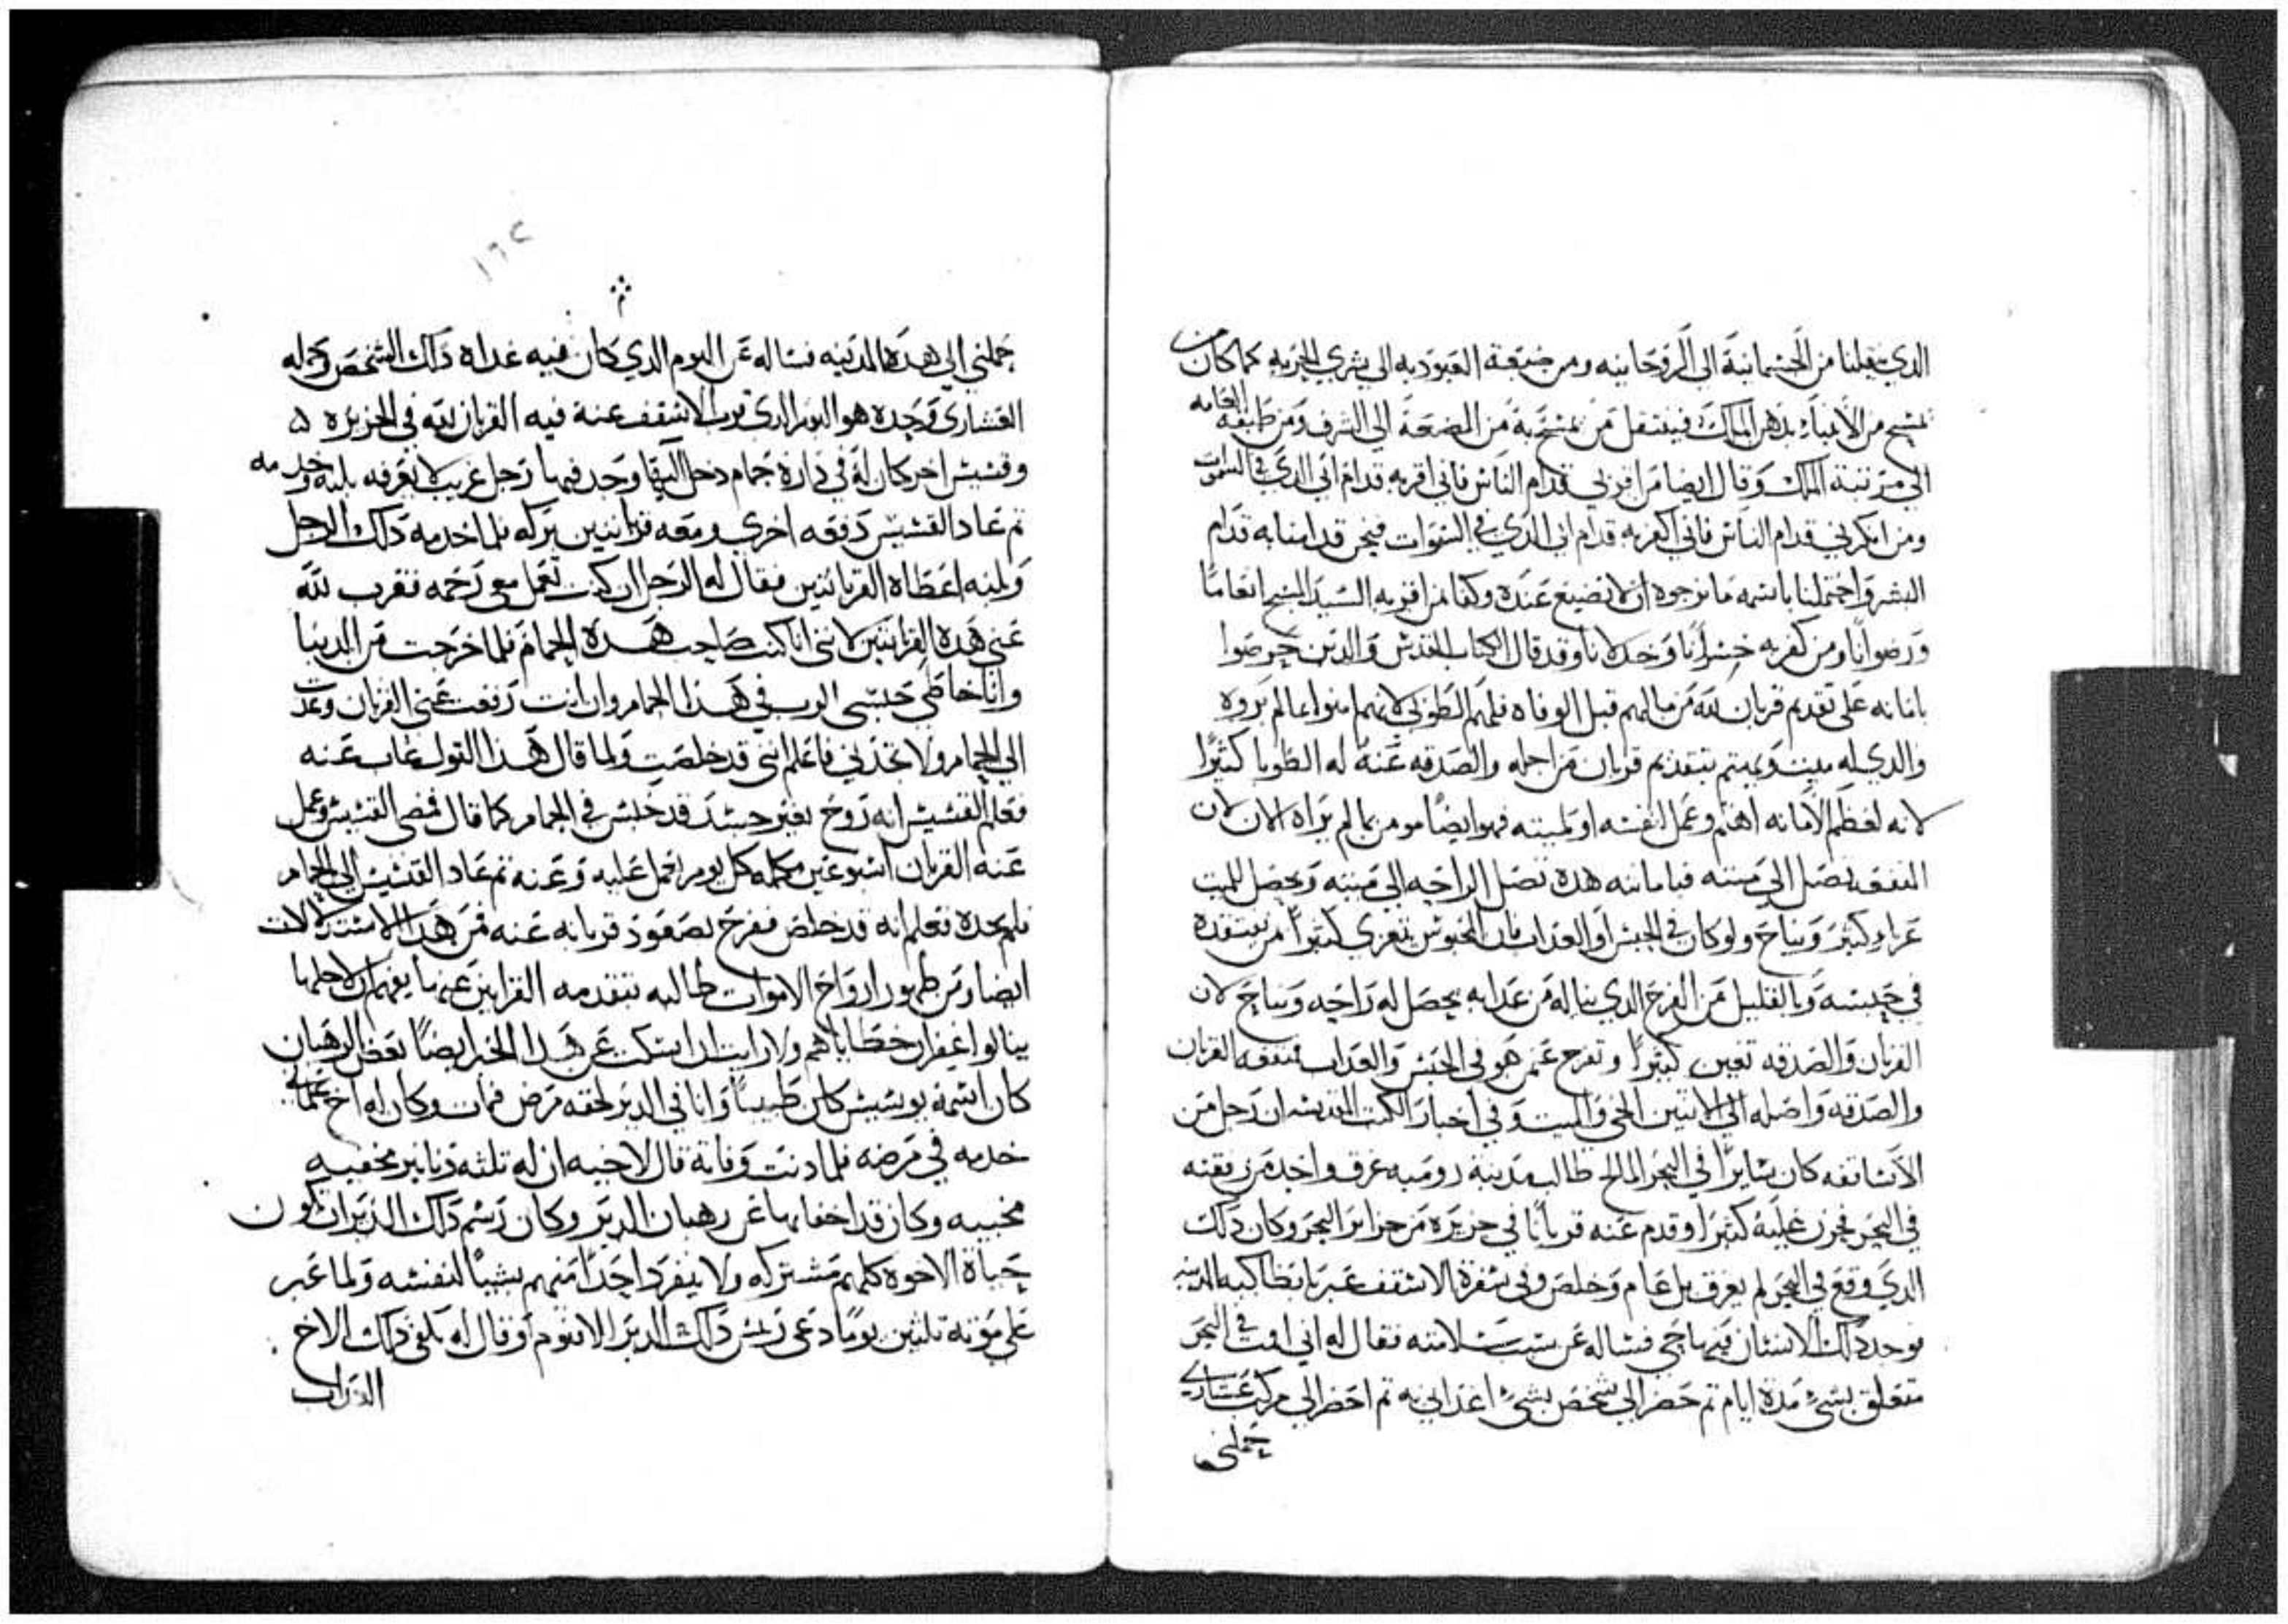 الذي ينقلنا من الجسمانية الى الروحانيه ومن ضيعة العبوديه الى بشري الحريه كما كان من
يمسح من الانبياء بدهن الملك فينتقل من يمسح به من الضعة الى الشرف ومن طبقة العامه
الى مرتبة الملك وقال ايضا من اقر بي قدام الناس فاني اقر به قدام ابي الذي في السموات
ومن انكرني قدام الناس فاني اكفر به قدام ابي الذي في السموات فنحن قد امنا به قدام
البشر واحتملنا باسمه ما نرجوه ان لا يضيع عنده وكفا من اقر به السيد المسيح انعاما
ورضوانا ومن كفر به خسرانا وخدلانا وقد قال الكتاب المقدس والدين حرصوا
بامانه على تقديم قربان لله من مالهم قبل الوفاه فلهم الطوبى لانهم امنوا بما لم يروه
والدي له ميت ويهتم بتقديم قربان من اجله والصدقه عنه له الطوبا كثيرا
لانه لعظم الامانه اهتم وعمل لنفسه او لميته فهو ايضا مومن بما لم يراه الان لان
المنفعه تصل الى ميته فبامانته هده تصل الراحه الى ميته ويحصل للميت
عزاء كبير ونياح ولو كان في الحبس او العداب فان المحبوس يتعزي كثيرا بمن يفتقده
في حبسه وبالقليل من الفرح الدي يناله من عدابه يحصل له راحه ونياح لان
القربان والصدقه تعين كثيرا وتفرح عمن هو في الحبس والعداب فمنفعه القربان
والصدقه واصله الى الاتنين الحي والميت وفي اخبار الكتب المقدسه ان رجل من
الاساقفه كان سايرا في البحر المالح طالب مدينة روميه غرق واحد من رفقته
في البحر فحزن عليه كثيرا وقدم عنه قربانا في جزيره من جزاير البحر وكان دلك
الدي وقع في البحر لم يغرق بل عام وخلص وفي سفرة الاسقف عبر بانطاكيه المدينه
فوجد دلك الانسان فيها حي فساله عن سبب سلامته فقال له اني اقمت في البحر
متعلق بشيء مدة ايام تم حضر الي شخص بشيء اغداني به تم احضر الي مركب عشاري
حملني
١٦٢
حملني الى هده المدينه فساله عن اليوم الدي كان فيه غداه داك الشخص وحمله
العشاري فوجده هو اليوم الدي قرب الاسقف عنه فيه القربان لله في الجزيره
وقسيس اخر كان له في داره حمام دخل اليها وجد فيها رجل غريب لا يعرفه يلبه وخدمه
تم عاد القسيس دفعه اخري ومعه قربانتين بركه فلما خدمه داك الرجل
ولبه اعطاه القربانتين فقال له الرجل ان كنت تعمل معي رحمه فقرب لله
عني هده القربانتين لانني انا كنت صاحب هده الحمام فلما خرجت من الدنيا
وانا خاطي حبسني الرب في هدا الحمام وان انت رفعت عني القربان وعدت
الى الحمام ولا تجدني فاعلم انني قد خلصت ولما قال هدا القول غاب عنه
فعلم القسيس انه روح بغير جسد قد حبس في الحمام كما قال فمضى القسيس وعمل
عنه القربان اسبوعين مكمله كل يوم عليه وعنه تم عاد القسيس الى الحمام
فلم يجده فعلم انه قد خلص ففرح بصعود قربانه عنه فمن هدا الاستدلالات
ايضا ومن ظهور ارواح الاموات طالبه بتقدمه القرابين عنها يفهم ان لاجلها
ينالوا غفران خطاياهم ولا رايت ان اسكت عن هدا الخبر ايضا بعض الرهبان
كان اسمه يوسيس كان طبيبا وانا في الدير لحقه مرض فمات وكان له اخ علماني
خدمه في مرضه فلما دنت وفاته قال لاخيه ان له تلته دنانير مخفيه
مخبيه وكان قد اخفاها عن رهبان الدير وكان رسم داك الدير ان تكون
حياة الاخوه كلهم مشتركه ولا ينفرد احدا منهم بشيا لنفسه ولما عبر
على موته تلتين يوما دعى ريس داك الدير الاقنوم وقال له بلغ دلك الاخ
التراب